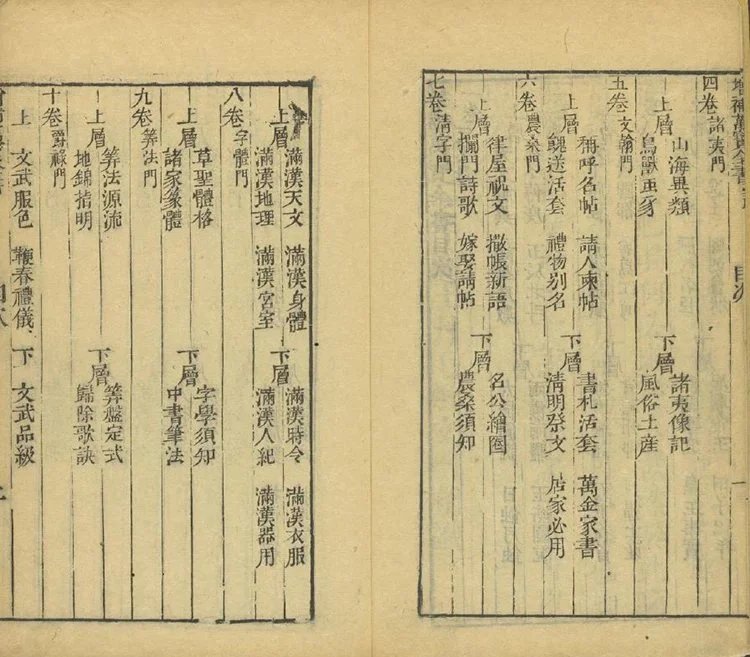 增補萬寶全書 目次 一
四卷 諸夷門
上層 山海異類 下層 諸夷像記
鳥獸虫豸 風俗土産
五卷 文翰門
上層 稱呼名帖 請人柬帖 下層 書札活套 萬金家書
餽送活套 禮物別名 清明祭文 居家必用
六卷 農桑門
上層 律屋祝文 撒帳新語 下層 名公繪圖
攔門詩歌 嫁娶請帖 農桑須知
七卷 清字門
上層 滿漢天文 滿漢身體 下層 滿漢時令 滿漢衣服
滿漢地理 滿漢宮室 滿漢人紀 滿漢器用
八卷 字體門
上層 草聖體格 下層 字學須知
諸家篆體 中書筆法
九卷 筭法門
上層 筭法源流 下層 筭盤定式
地錦指明 歸除歌訣
十卷 爵祿門
上 文武服色 鞭春禮儀 下 文武品級